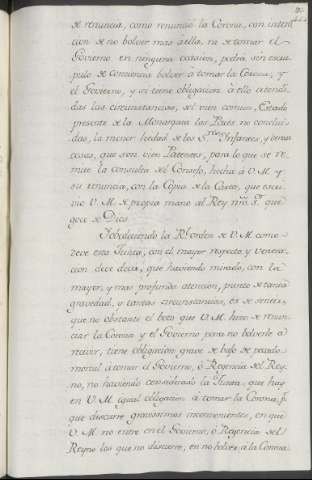 de renuncia, como renunció la Corona, con inten
cion de no bolver mas á ella, ni de tomar el
Govierno en ninguna ocasion, podrá sin escru
pulo de conciencia bolver á tomar la Corona, y
el Govierno, y si tiene obligacion á ello atendi
das las circunstancias, del vien comun, Estado
presente de la Monarquia las Pazes no conclui
das, la menor hedad de los S.res Infantes, y demas
cosas, que son vien Patentes, para lo que se re
mite la consulta del Consejo, hecha á V. M. y
su renuncia, con la Copia de la Carta, que escri
vio V. M. de propia mano al Rey nro. S.r que
goce de Dios.
Y obedeciendo la R.l orden de V. M. como
deve esta Junta, con el mayor respecto, y venera
cion deve decir, que haviendo mirado, con la
mayor, y mas profunda atencion, punto de tanta
gravedad, y tantas circunstancias, és de sentir,
que no obstante el boto que V. M. hizo de renun
ciar la Corona y el Govierno para no bolverle á
recivir, tiene obligacion grave de bajo de pecado
mortal á tomar el Govierno, ó Regencia del Rey
no, no haviendo considerado la Junta, que hay
en V. M. igual obligacion á tomar la Corona, p.r
que discurre gravissimos inconvenientes, en que
V. M. no entre en el Govierno, ó Regencia del
Reyno los que no discurre, en no bolver á la Corona